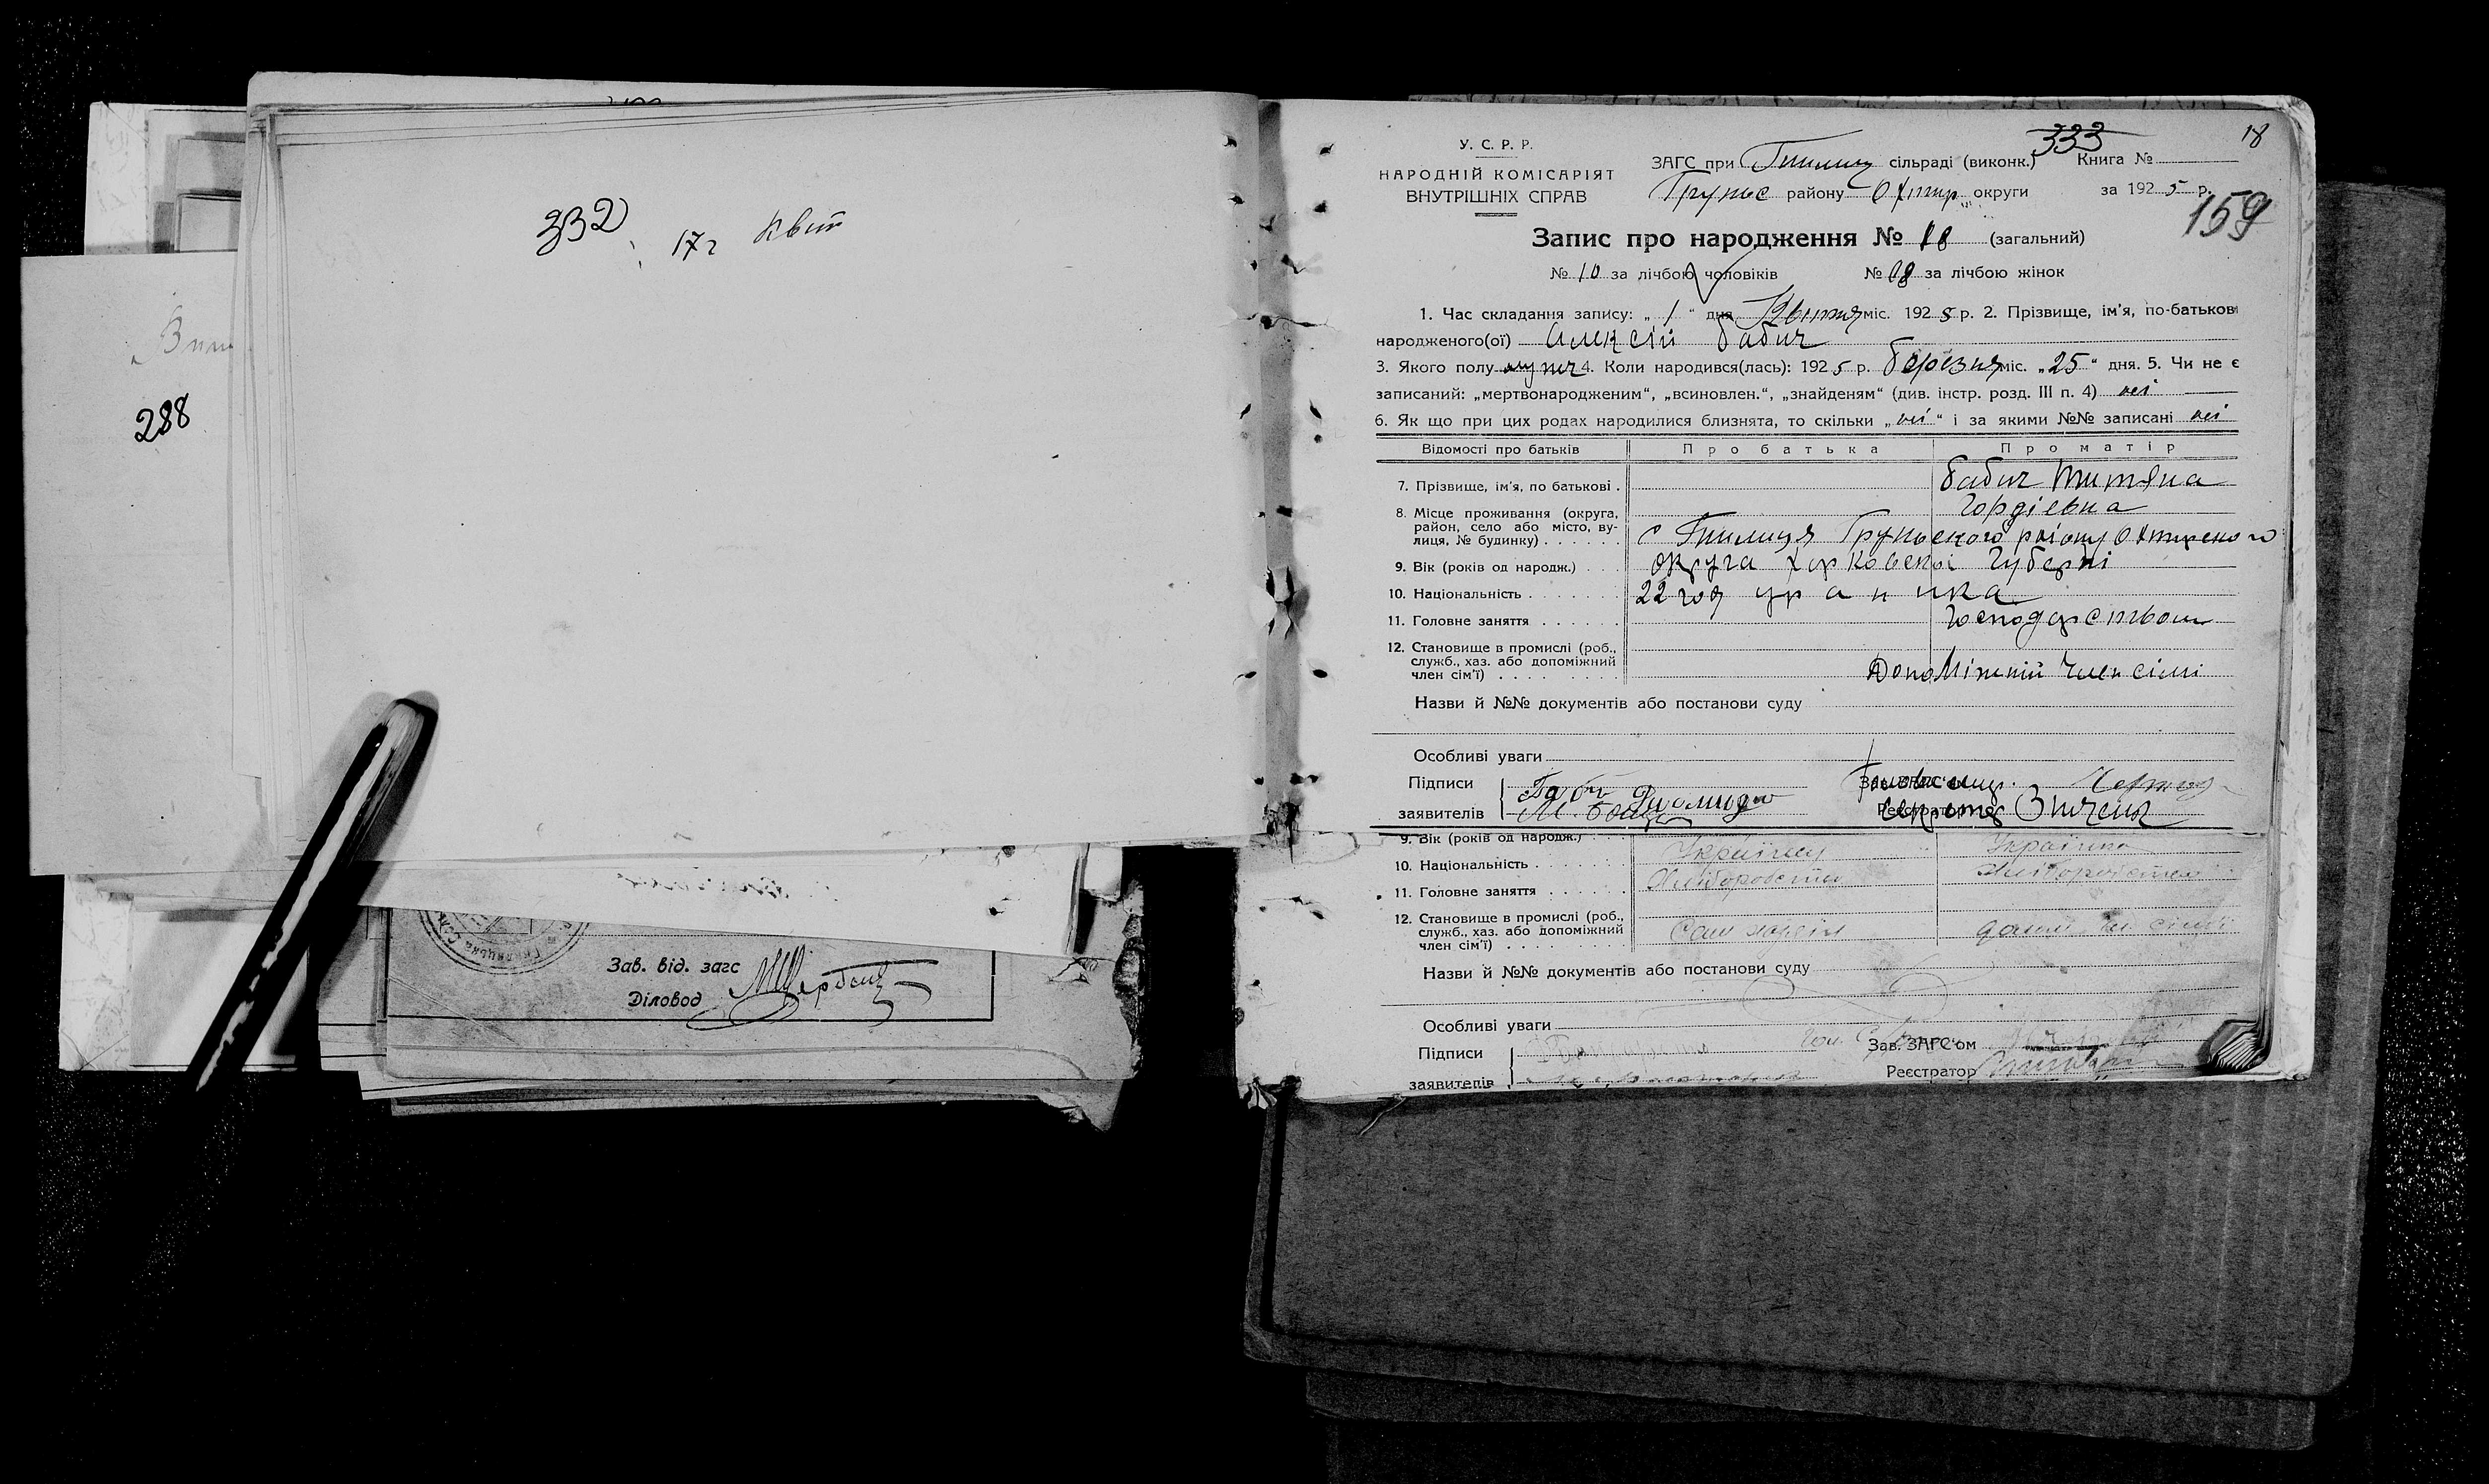 332
17г квіт
288
Зав. від. загс
Діловод МЩербак
18
333
159
У. С. Р. Р.
НАРОДНІЙ КОМІСАРІЯТ
ВНУТРІШНІХ СПРАВ
ЗАГС при Гнилиц сільраді (виконк.) Книга №
Груньс району Охтир округи за 1925 р.
Запис про народження № 18 (загальний)
№ 10 за лічбою чоловіків № 08 за лічбою жінок
1. Час складання запису: „ 1 “ дня Квітня міс. 1925 р. 2. Прізвище, ім’я, по-батькові
народженого(ої) Алексій бабич
3. Якого полу муж 4. Коли народився(лась): 1925 р. березня міс. „25“ дня. 5. Чи не є
записаний: „мертвонародженим“, „всиновлен.“, „знайденям“ (див. інстр. розд. III п. 4) неі
6. Як що при цих родах народилися близнята, то скільки „неі“ і за якими №№ записані неі
Відомості про батьків Про батька Про матір
7. Прізвище, ім’я, по батькові . бабич Титяна
Гордіевна
8. Місце проживання (округа,
район, село або місто, ву-
лиця, № будинку) . . . . . . с Гнилиця Груньского раіону Охтирського
9. Вік (років од народж.) . . . округа Харковскоі Губерні
10. Національність . . . . . . . 22 год украинка
11. Головне заняття . . . . . . Господарством
12. Становище в промислі (роб.,
служб., хаз. або допоміжний
член сім’ї) . . . . . . . . . Допоміжний член сімі
Назви й №№ документів або постанови суду
Особливі уваги
Підписи
заявителів
Зав. ЗАГС’ом
Реєстратор
9. Вік (років од народж.) . . .
10. Національність . . . . . . . Українец Українка
11. Головне заняття . . . . . . Хліборобство Хліборобство
12. Становище в промислі (роб.,
служб., хаз. або допоміжний
член сім’ї) . . . . . . . . . Сам хазяін
Назви й №№ документів або постанови суду
Особливі уваги
Підписи Зав. ЗАГС’ом
заявителів Реєстратор